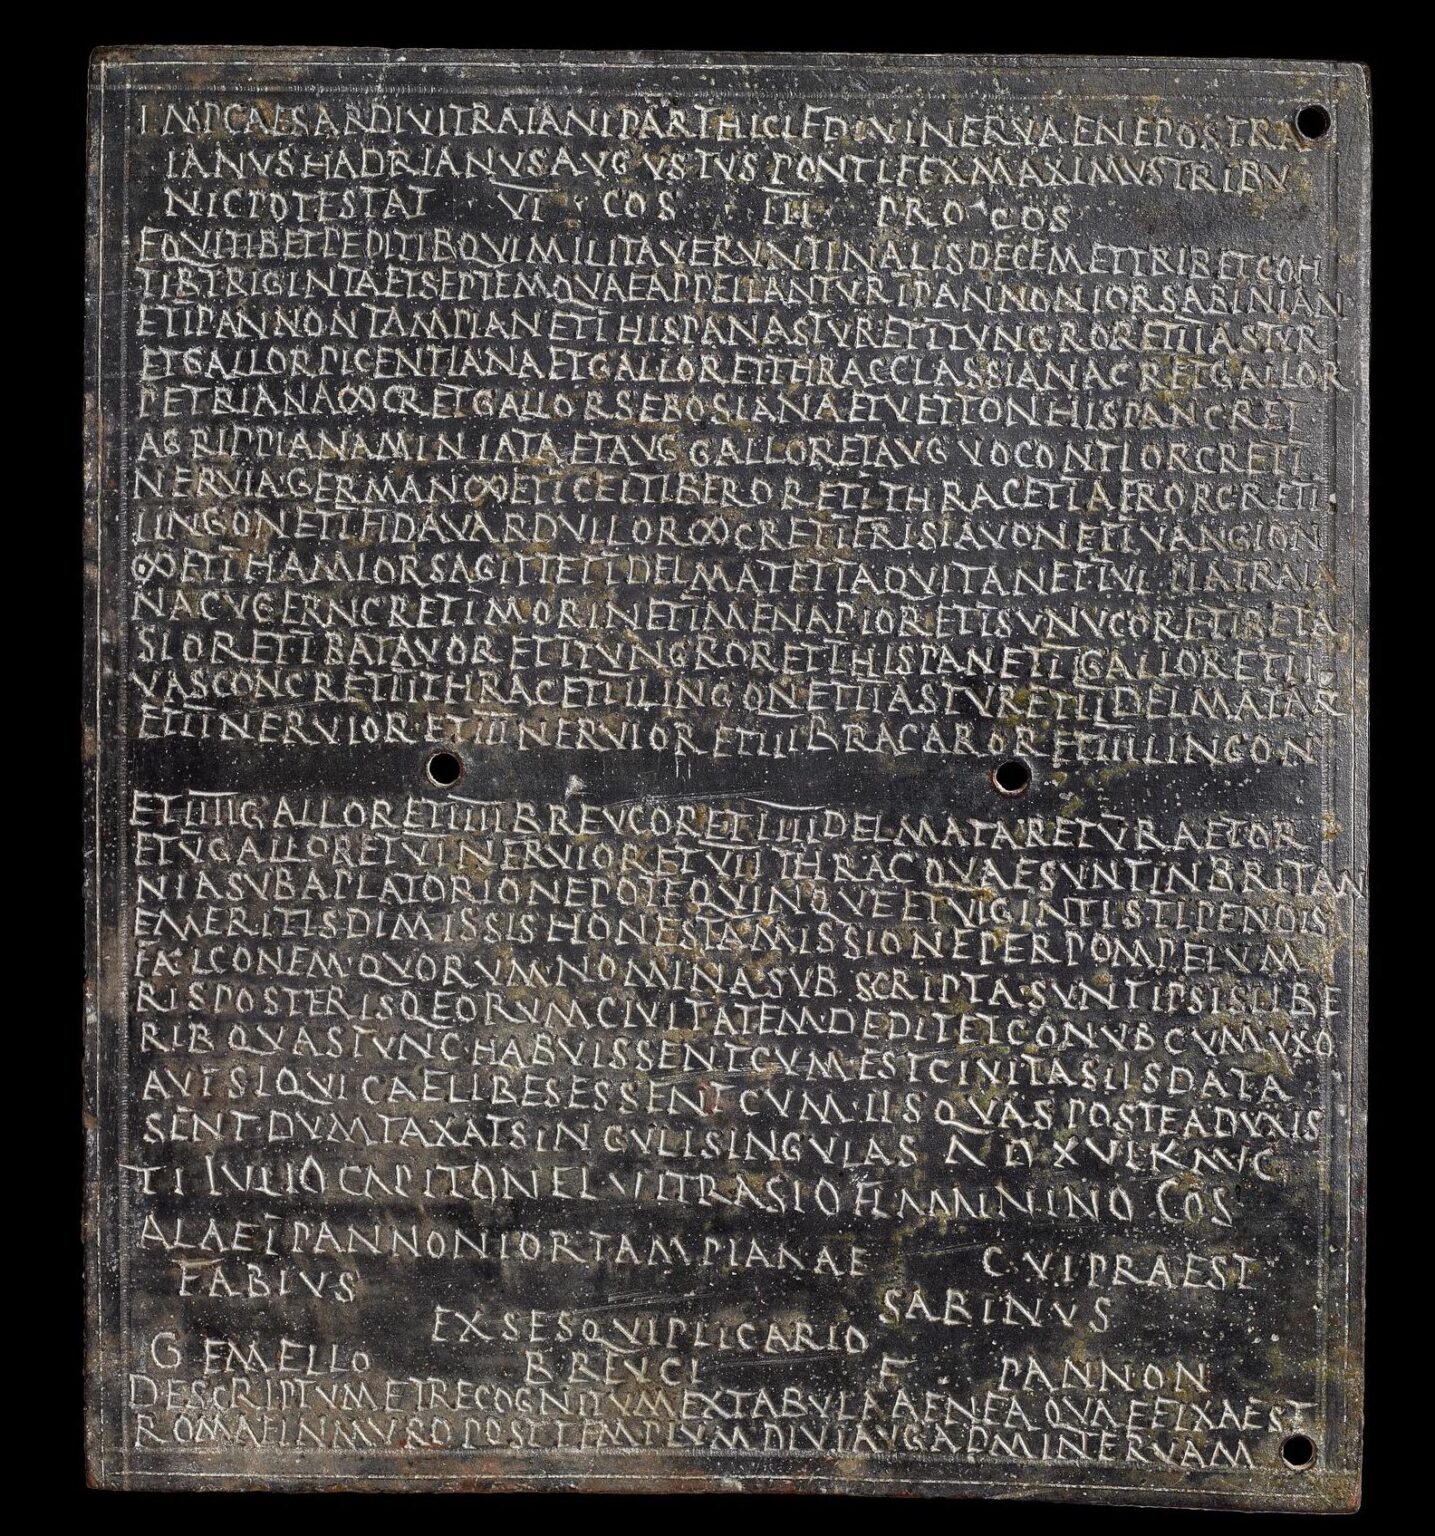 IMP CAESAR DIVI TRAIANI PARTHICI F DIVI NERVAE NEPOS TRA
IANVS HADRIANVS AVGVSTVS PONTIFEX MAXIMVS TRIBV
NIC POTESTAT · VI · COS · III · PRO COS
EQVITIB ET PEDITIB QVI MILITAVERVNT IN ALIS DECEM ET TRIB ET COH
TIB TRIGINTA ET SEPTEM QVAE APPELLANTVR I PANNONIOR SABINIAN
ET I PANNON TAMPIAN ET I HISPAN ASTVR ET I TVNGROR ET II ASTVR
ET GALLOR PICENTIANA ET GALLOR ET THRAC CLASSIANA C R ET GALLOR
PETRIANA ∞ C R ET GALLOR SEBOSIANA ET VETTON HISPAN C R ET
AGRIPPIANA MINIATA ET AVG GALLOR ET AVG VOCONTIOR C R ET I
NERVIA GERMAN ∞ ET I CELTIBEROR ET I THRAC ET I AFROR C R ET I
LINGON ET I FIDA VARDVLLOR ∞ C R ET I FRISIAVON ET I VANGION
∞ ET I HAMIOR SAGITT ET I DELMAT ET I AQVITAN ET I VLPIA TRAIA
NA CVGERN C R ET I MORIN ET I MENAPIOR ET I SVNVCOR ET I BETA
SIOR ET I BATAVOR ET I TVNGROR ET I HISPAN ET II GALLOR ET II
VASCON C R ET II THRAC ET II LINGON ET II ASTVR ET II DELMATAR
ET II NERVIOR · ET III NERVIOR ET III BRACAROR ET IIII LINGON
ET IIII GALLOR ET IIII BREVCOR ET IIII DELMATAR ET V RAETOR
ET V GALLOR ET VI NERVIOR ET VII THRAC QVAE SVNT IN BRITAN
NIA SVB A PLATORIO NEPOTE QVINQVE ET VIGINTI STIPENDIS
EMERITIS DIMISSIS HONESTA MISSIONE PER POMPEIVM
FALCONEM · QVORVM NOMINA SVBSCRIPTA SVNT IPSIS LIBE
RIS POSTERISQ EORVM CIVITATEM DEDIT ET CONVB CVM VXO
RIB QVAS TVNC HABVISSENT CVM EST CIVITAS IIS DATA
AVT SIQVI CAELIBES ESSENT CVM IIS QVAS POSTEA DVXIS
SENT DVMTAXAT SINGVLI SINGVLAS A D XVI K AVG
TI IVLIO CAPITONE L VITRASIO FLAMININO COS
ALAE I PANNONIOR TAMPIANAE CVI PRAEST
FABIVS SABINVS
EX SESQVIPLICARIO
GEMELLO BREVCI F PANNON
DESCRIPTVM ET RECOGNITVM EX TABVLA AENEA QVAE FIXA EST
ROMAE IN MVRO POST TEMPLVM DIVI AVG AD MINERVAM